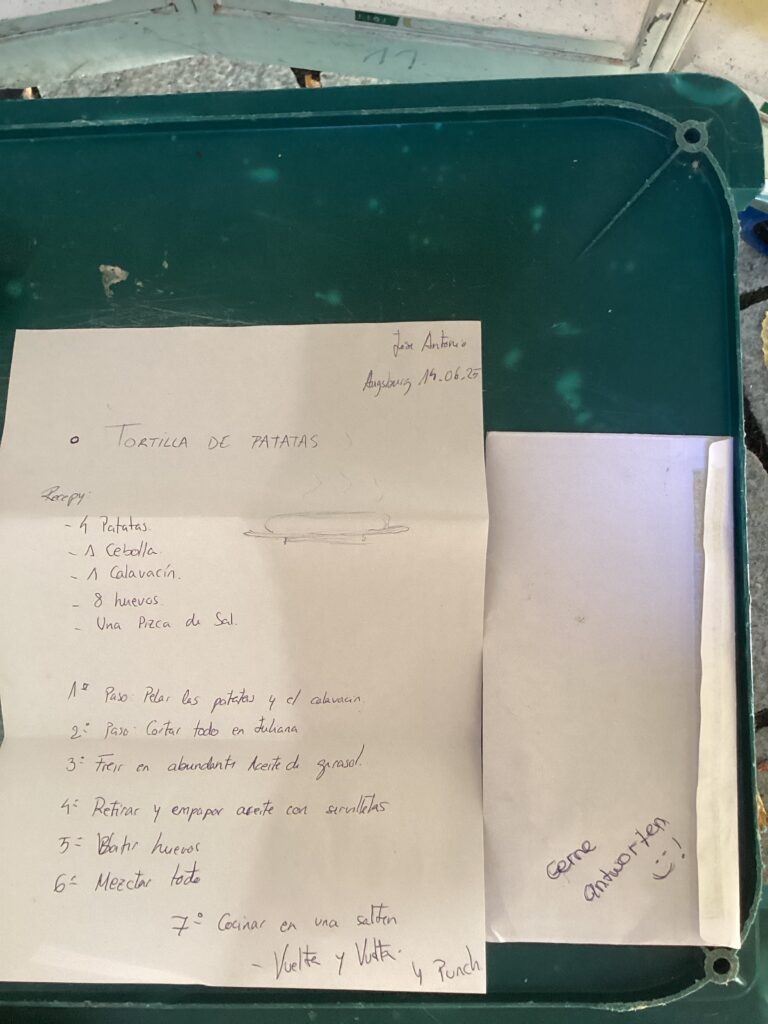 Jose Antonio
Augsburg 14-06-25
TORTILLA DE PATATAS
Recepy:
- 4 Patatas.
- 1 Cebolla.
- 1 Calavacín.
- 8 huevos.
- Una Pizca de Sal.
1º Paso: Pelar las patatas y el calavacin.
2º Paso: Cortar todo en Juliana
3º Freir en abundante Aceite de girasol.
4º Retirar y empapar aceite con servilletas
5º Batir huevos
6º Mezclar todo
7º Cocinar en una salten
- Vuelta y Vuelta.
y Punch
Gerne
antworten
:-)!
11